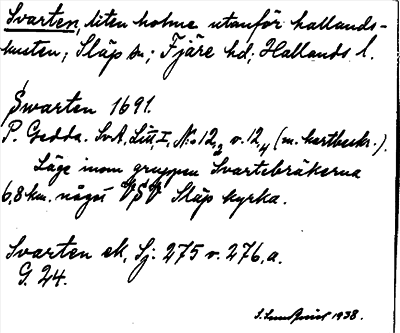 Svarten, liten holme utanför hallands-
kusten; Släp sn; Fjäre hd; Hallands l.
Swarten 1691.
P. Gedda. SvA, Litt I, No 12,2 o. 12,4 (m. kartbeskr.).
Läge inom gruppen Svartebråkerna
6,8 km. något VSV Släp kyrka.
Svarten ek, Sj. 275 o. 276, a.
G. 24.
1938.